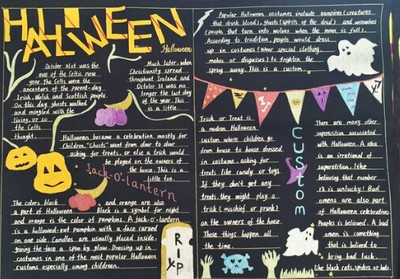 HALLOWEEN
Halloween
October 31st was the
eve of the Celtic new
year. The Celts were the
ancestors of the present-day
Irish, Welsh and Scottish people.
On this day ghosts walked
and mingled with the
living, or so
the Celts
thought.
Much later, when
Christianity spread
throughout Ireland and
October 31 was no
longer the last day
of the year. This
is a little.
Halloween became a celebration mostly for
Children. "Ghosts" went from door to door
asking for treats, or else a trick would
be played on the owners of
the house. This is a
little too.
Jack-o'-lantern
The colors, black and orange are also
a part of Halloween. Black is a symbol for night
and orange is the color of pumpkins. A jack-o'-lantern
is a hollowed-out pumpkin with a face carved
on one side. Candles are usually placed inside,
giving the face a spooky glow. Dressing up in
costumes is one of the most popular Halloween
customs, especially among children.
RIP
Popular Halloween costumes include vampires (creatures
that drink blood), ghosts (spirits of the dead) and werewolves
(people that turn into wolves when the moon is full).
According to tradition, people would dress
up in costumes (wear special clothing,
makes or disguises) to frighten the
spring away. This is a custom.
Trick or Treat is
a modern Halloween
custom where children go
from house to house dressed
in costume, asking for
treats like candy or toys.
If they don't get any
treats, they might play a
trick (mischief or prank)
on the owners of the house.
These things happen all
the time.
custom
There are many other
superstition associated
with Halloween. A idea
is an irrational of
superstition, like
believing that number
13 is unlucky! Bad
omens are also part
of Halloween celebrations.
Peoples is believed. A bad
omen is something
that is believed to
bring bad luck,
like black cats, spiders or bats.